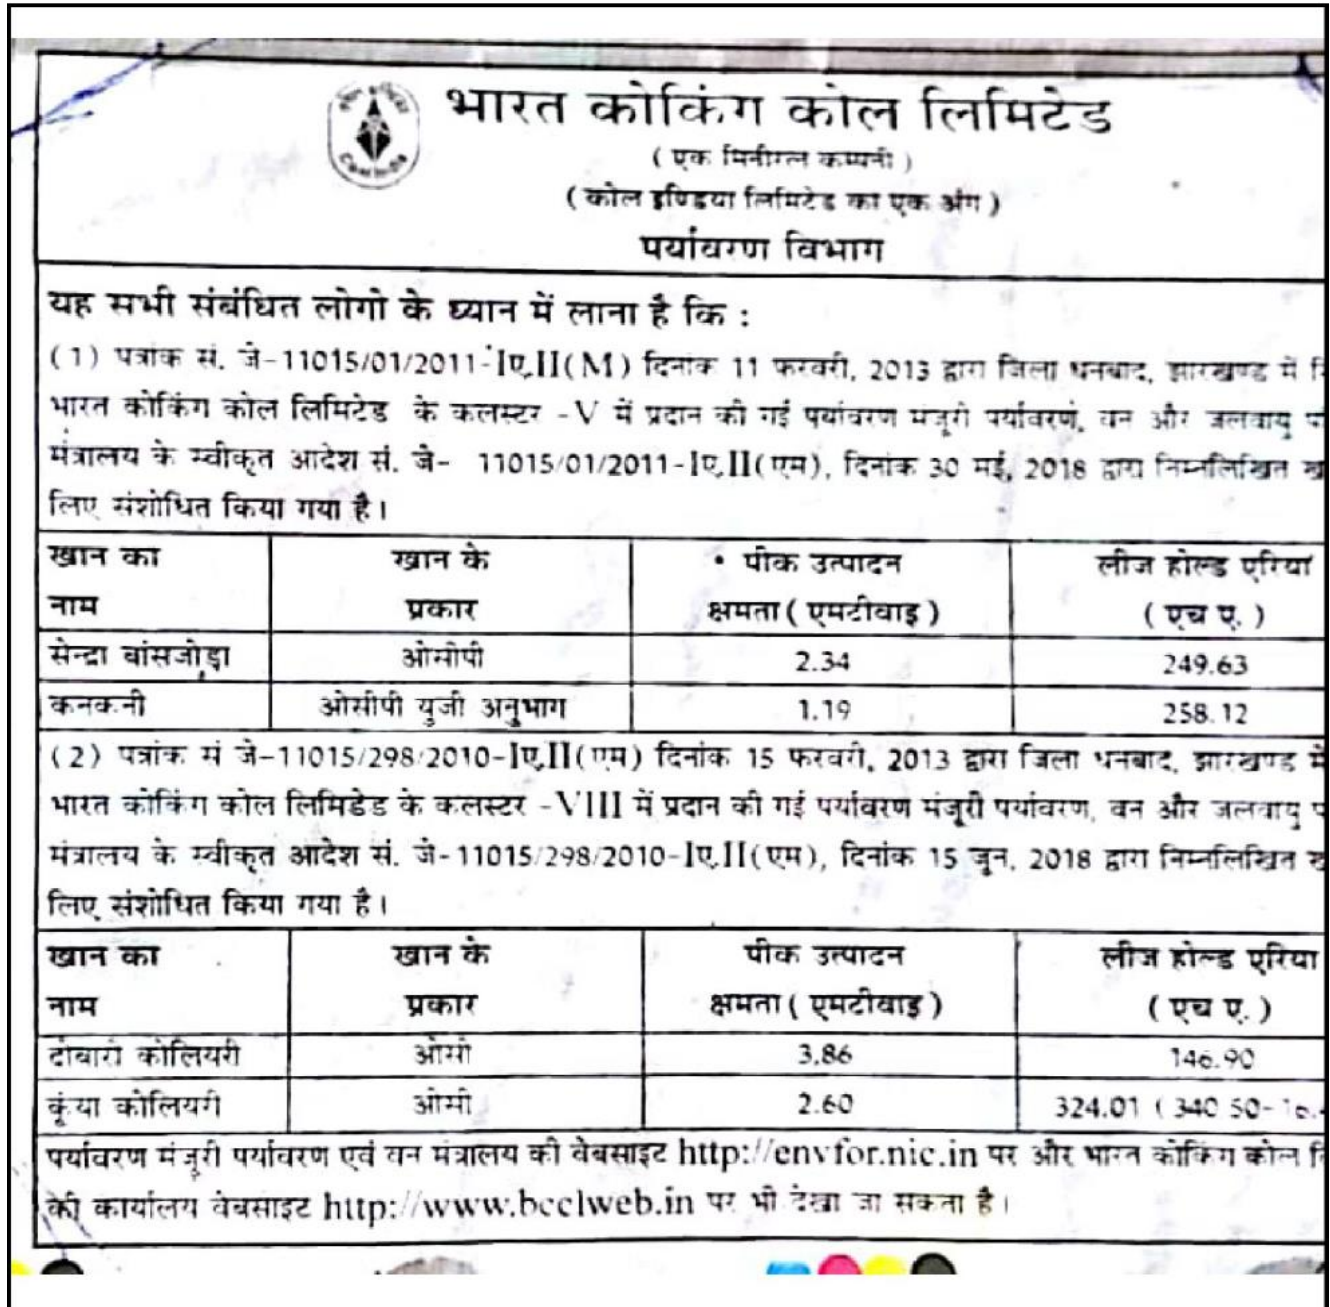 भारत कोकिंग कोल लिमिटेड
( एक मिनीरत्न कम्पनी )
( कोल इण्डिया लिमिटेड का एक अंग )
पर्यावरण विभाग
यह सभी संबंधित लोगो के ध्यान में लाना है कि :
(1) पत्रांक सं. जे-11015/01/2011-Iए.II(M) दिनांक 11 फरवरी, 2013 द्वारा जिला धनबाद, झारखण्ड में
भारत कोकिंग कोल लिमिटेड के कलस्टर -V में प्रदान की गई पर्यावरण मंजुरी पर्यावरण, वन और जलवायु
मंत्रालय के स्वीकृत आदेश सं. जे- 11015/01/2011-Iए.II(एम), दिनांक 30 मई, 2018 द्वारा निम्नलिखित
लिए संशोधित किया गया है।
खान का खान के पीक उत्पादन लीज होल्ड एरिया
नाम प्रकार क्षमता ( एमटीवाइ ) ( एच ए. )
सेन्द्रा बांसजोड़ा ओसीपी 2.34 249.63
कनकनी ओसीपी युजी अनुभाग 1.19 258.12
(2) पत्रांक सं जे-11015/298/2010-Iए.II(एम) दिनांक 15 फरवरी, 2013 द्वारा जिला धनबाद, झारखण्ड में
भारत कोकिंग कोल लिमिडेड के कलस्टर -VIII में प्रदान की गई पर्यावरण मंजूरी पर्यावरण, वन और जलवायु
मंत्रालय के स्वीकृत आदेश सं. जे-11015/298/2010-Iए.II(एम), दिनांक 15 जून, 2018 द्वारा निम्नलिखित
लिए संशोधित किया गया है।
खान का खान के पीक उत्पादन लीज होल्ड एरिया
नाम प्रकार क्षमता ( एमटीवाइ ) ( एच ए. )
दोबारी कोलियरी ओसी 3.86 146.90
कूंया कोलियरी ओसी 2.60 324.01 ( 340.50-
पर्यावरण मंजुरी पर्यावरण एवं वन मंत्रालय की वेबसाइट http://envfor.nic.in पर और भारत कोकिंग कोल
की कार्यालय वेबसाइट http://www.bcclweb.in पर भी देखा जा सकता है।